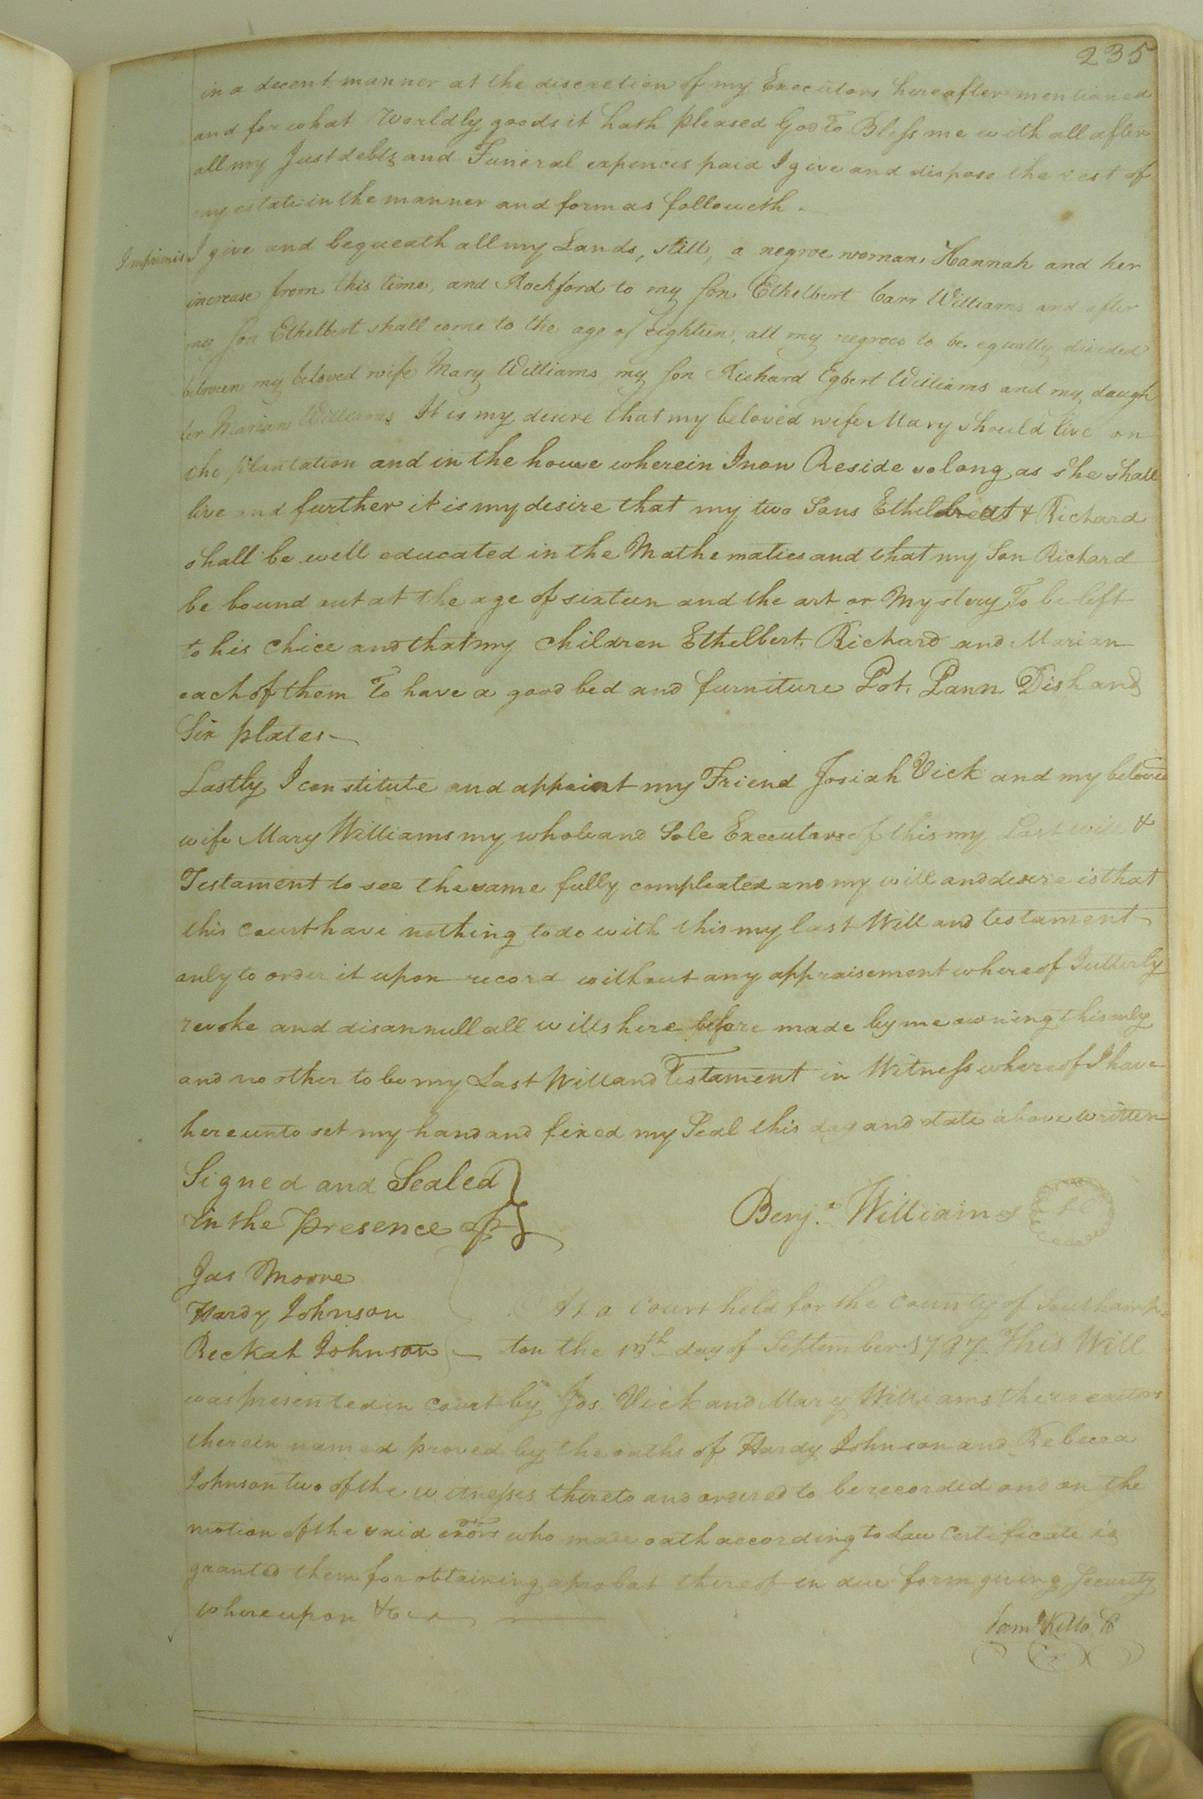 235
in a decent manner at the discretion of my Executors hereafter mentioned
and for what Worldly goods it hath pleased God To Bless me with all after
all my Just debts and Funeral expences paid I give and dispose the rest of
my estate in the manner and form as followeth.
Imprimis I give and bequeath all my Lands, still, a negroe woman, Hannah and her
increase from this time, and Rockford to my Son Ethelbert Carr Williams and after
my Son Ethelbert shall come to the age of eighteen, all my negroes to be equally divided
between my beloved wife Mary Williams my Son Richard Egbert Williams and my daugh
ter Marian Williams It is my desire that my beloved wife Mary should live on
the plantation and in the house wherein I now Reside so long as she shall
live and further it is my desire that my two Sons & Richard
shall be well educated in the Mathematics and that my Son Richard
be bound out at the age of sixteen and the art or Mystery To be left
to his Chice and that my children Ethelbert, Richard and Marian
each of them To have a good bed and furniture Pot, Pann Dish and
Six plates
Lastly I constitute and appoint my Friend Josiah Vick and my beloved
wife Mary Williams my whole and Sole Executors of this my Last will &
Testament to see the same fully compleated and my will and desire is that
this court have nothing to do with this my last Will and testament
only to order it upon record without any appraisement whereof I utterly
revoke and disannull all wills here before made by me owning this only
and no other to be my Last Will and Testament in Witness whereof I have
hereunto set my hand and fixed my Seal this day and date above written
Signed and Sealed
In the presence of
Benj.ª Williams
Jas Moore
Hardy Johnson
Beckah Johnson
At a Court held for the County of Southamp-
ton the day of September 1787 This Will
was presented in Court by Jos. Vick and Mary Williams the executors
therein named proved by the oaths of Hardy Johnson and Rebecca
Johnson two of the witnesses thereto and ordered to be recorded and on the
motion of the said exors who made oath according to Law Certificate is
granted them for obtaining a probat thereof in due form giving Security
whereupon &c